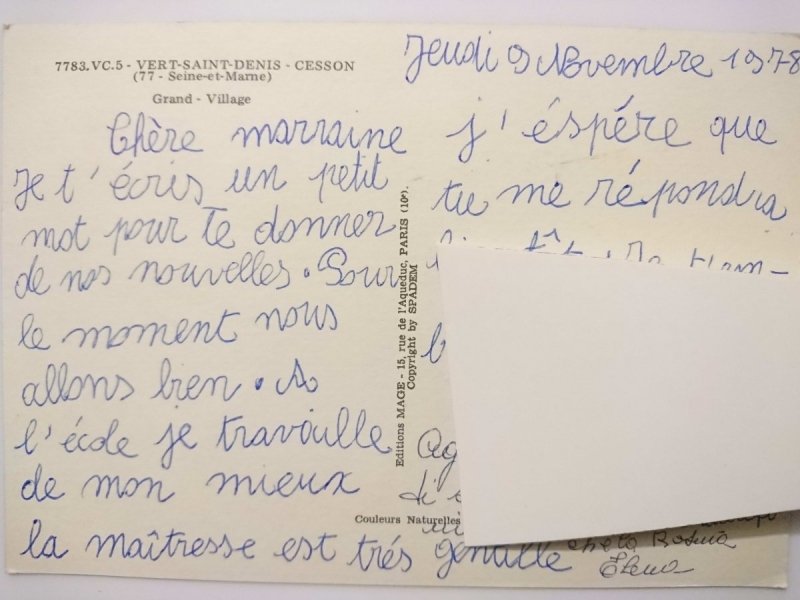 7783.VC.5 - VERT-SAINT-DENIS - CESSON
(77 - Seine-et-Marne)
Grand - Village
Chère marraine
Je t'écris un petit
mot pour te donner
de nos nouvelles. Pour
le moment nous
allons bien. A
l'école je travaille
de mon mieux
la maîtresse est trés gentille
Editions MAGE - 15, rue de l'Aqueduc, PARIS (10e).
Copyright by SPADEM
Couleurs Naturelles
Jeudi 9 Novembre 1978
j'éspére que
tu me répondra
Elena